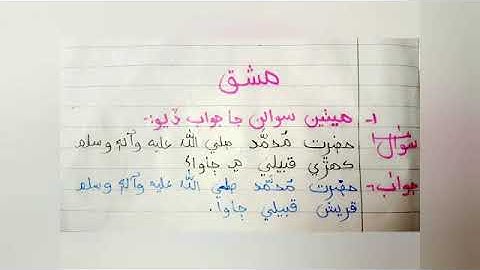 مشق
1- هيٺين سوالن جا جواب ڏيو:-
سوال1 حضرت مُحمّد صلي الله عليه وآلہٖ وسلم
ڪهڙي قبيلي ۾ ڄاوا؟
جواب- حضرت مُحمّد صلي الله عليه وآلہٖ وسلم
قريش قبيلي ڄاوا.